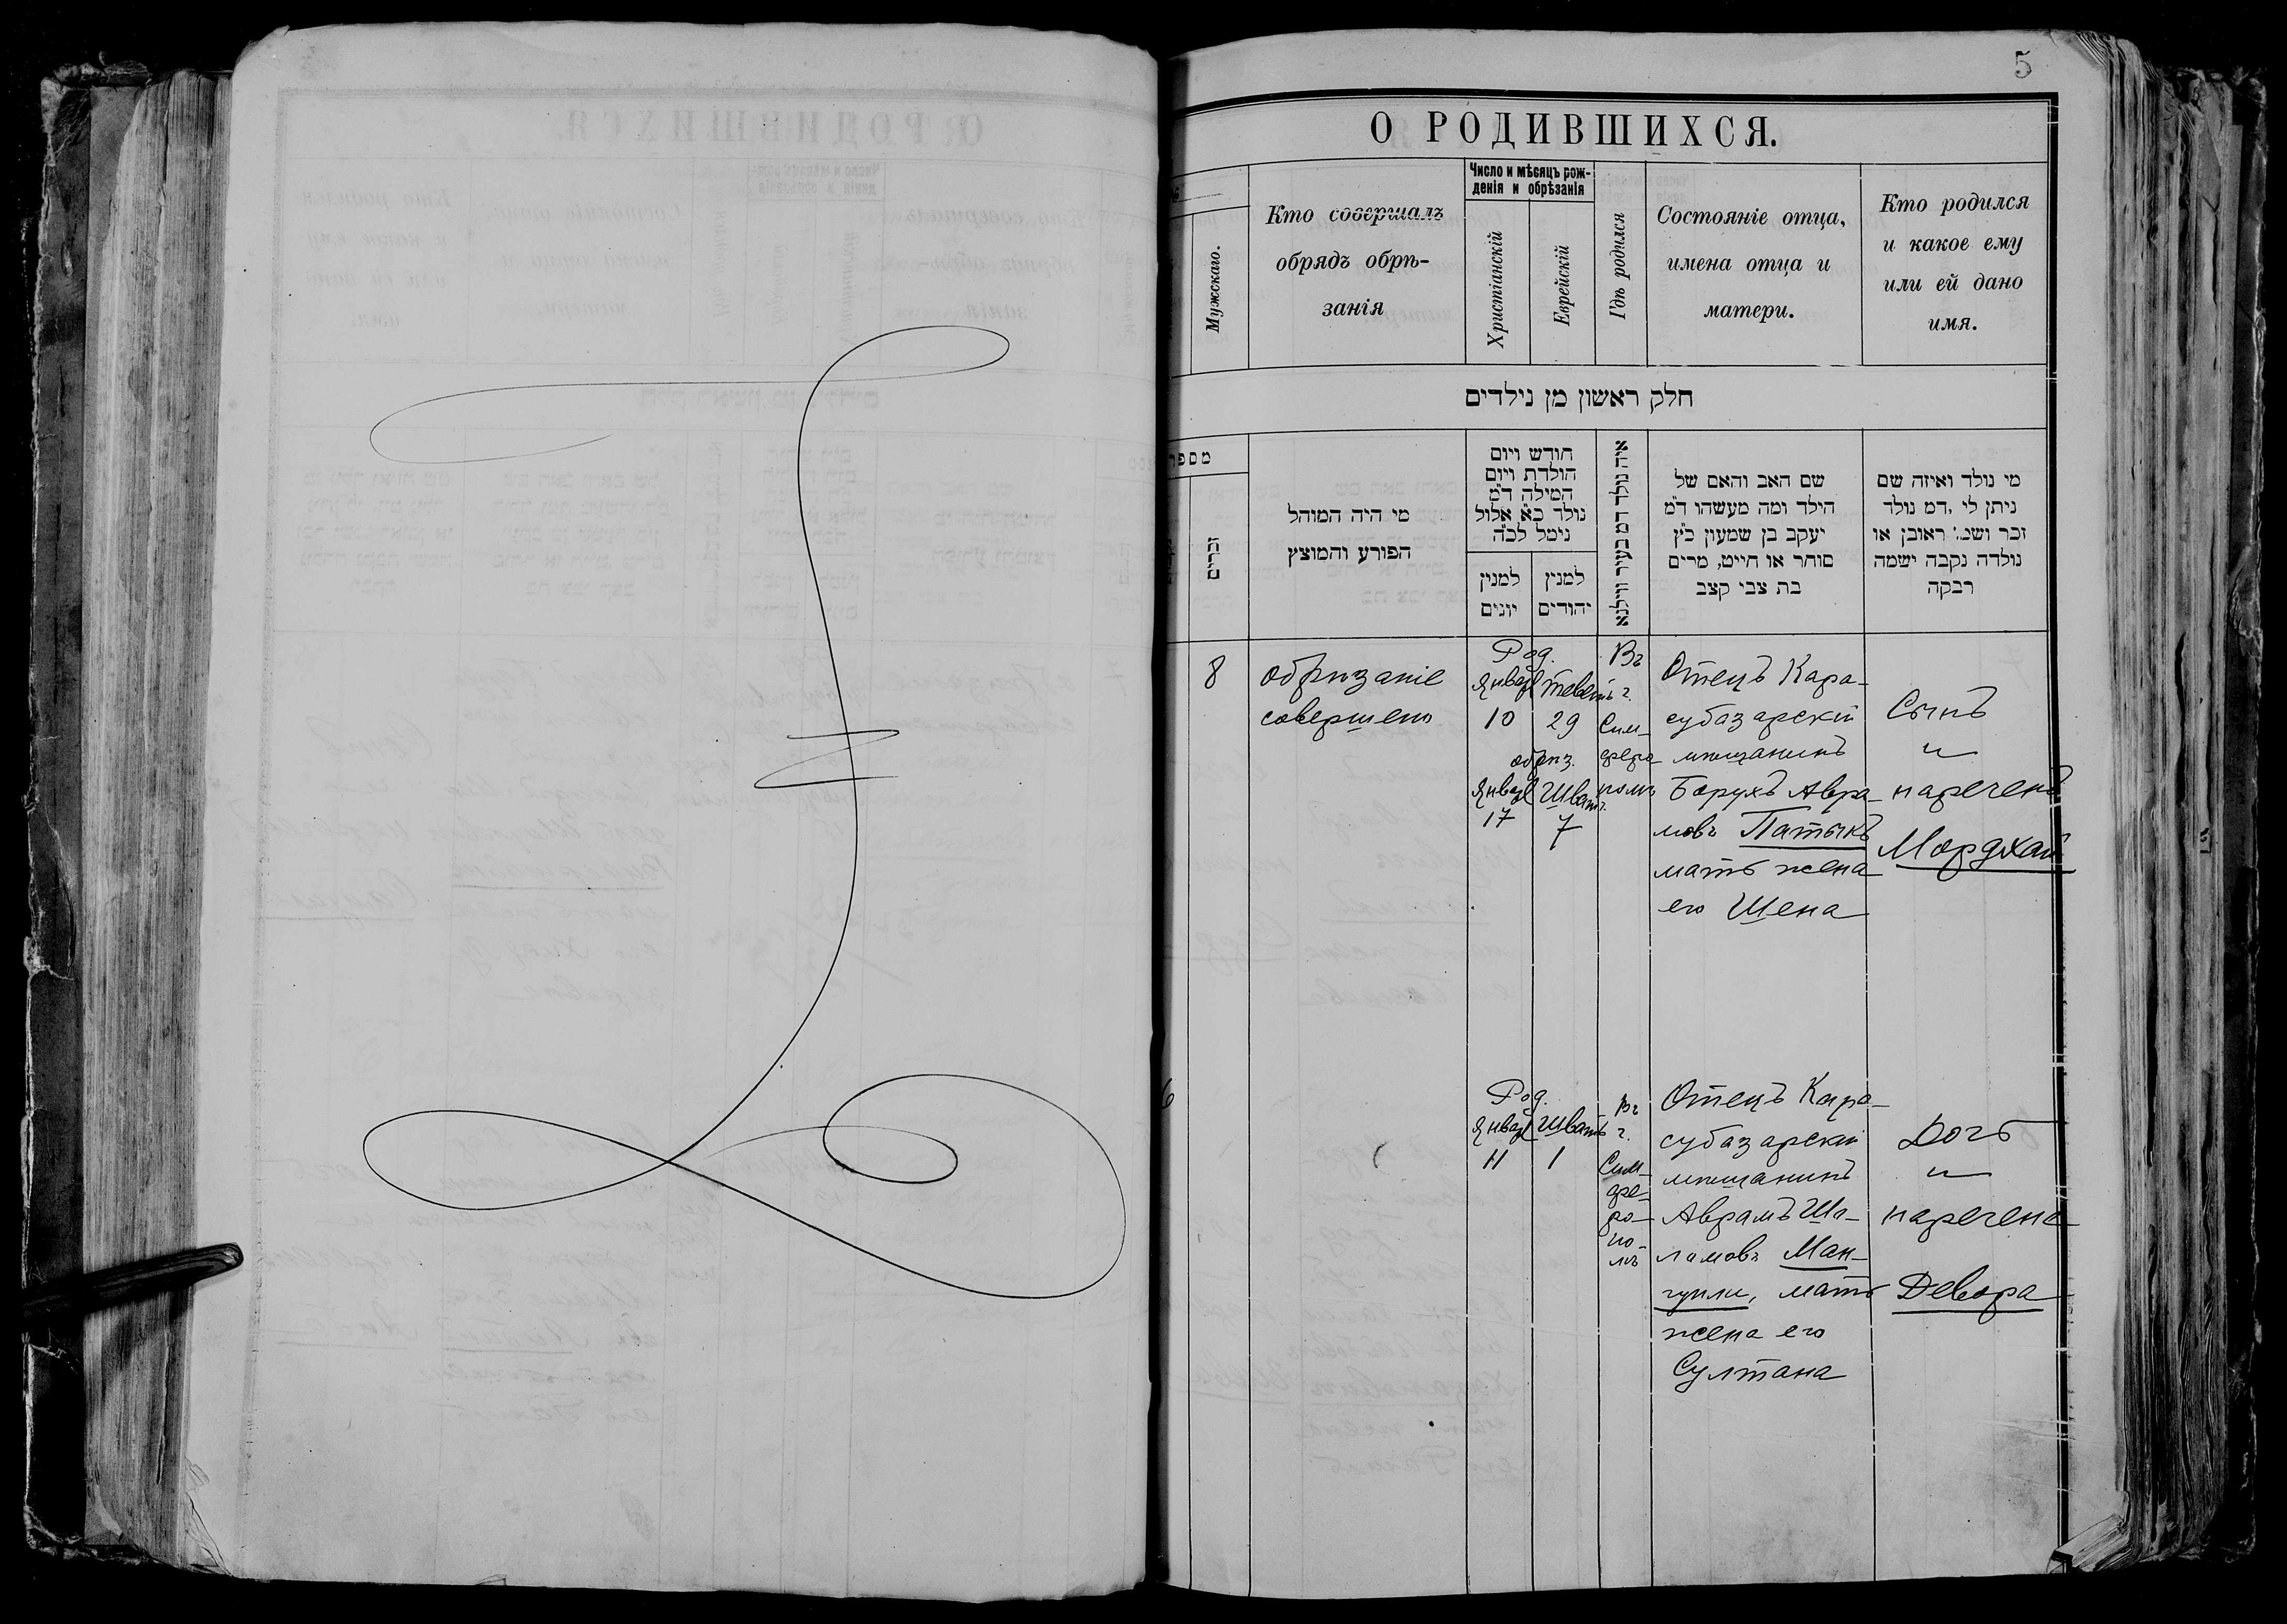 5
О РОДИВШИХСЯ.
Мужскаго.
Кто совершалъ
обрядъ обрѣ-
занія
Число и мѣсяцъ рож-
денія и обрѣзанія
Христіанскій
Еврейскій
Гдѣ родился
Состояніе отца,
имена отца и
матери.
Кто родился
и какое ему
или ей дано
имя.
חלק ראשון מן נילדים
מספר
זכרים
מי היה המוהל
הפורע והמוצץ
חודש ויום
הולדת ויום
המילה ד״מ
נולד כ״א אלול
נימל לכ״ה
למנין
יונים
למנין
יהודים
איה נולד דמ בעיר ווילנא
שם האב והאם של
הילד ומה מעשהו ד״מ
יעקב בן שמעון כ״ץ
סוחר או חייט, מרים
בת צבי קצב
מי נולד ואיזה שם
ניתן לי ,דמ נולד
זכר ושמ׳ ראובן או
נולדה נקבה ישמה
רבקה
8
обрѣзаніе
совершено
Род.
Январ Теветъ
10 29
обрѣз.
Январ Шватъ
17 7
Въ
г.
Сим-
феро-
полѣ
Отецъ Кара-
субазарскій
мѣщанинъ
Борухъ Авра-
мовъ Патыкъ
мать жена
его Шена
Сынъ
и
нареченъ
Мордхай
6
Род.
Январ Шватъ
11 1
Въ
г.
Сим-
фе-
ро-
по-
лѣ
Отецъ Кара-
субазарскій
мѣщанинъ
Аврамъ Ша-
ламовъ Ман-
гупли, мать
жена его
Султана
Дочь
и
наречена
Девора